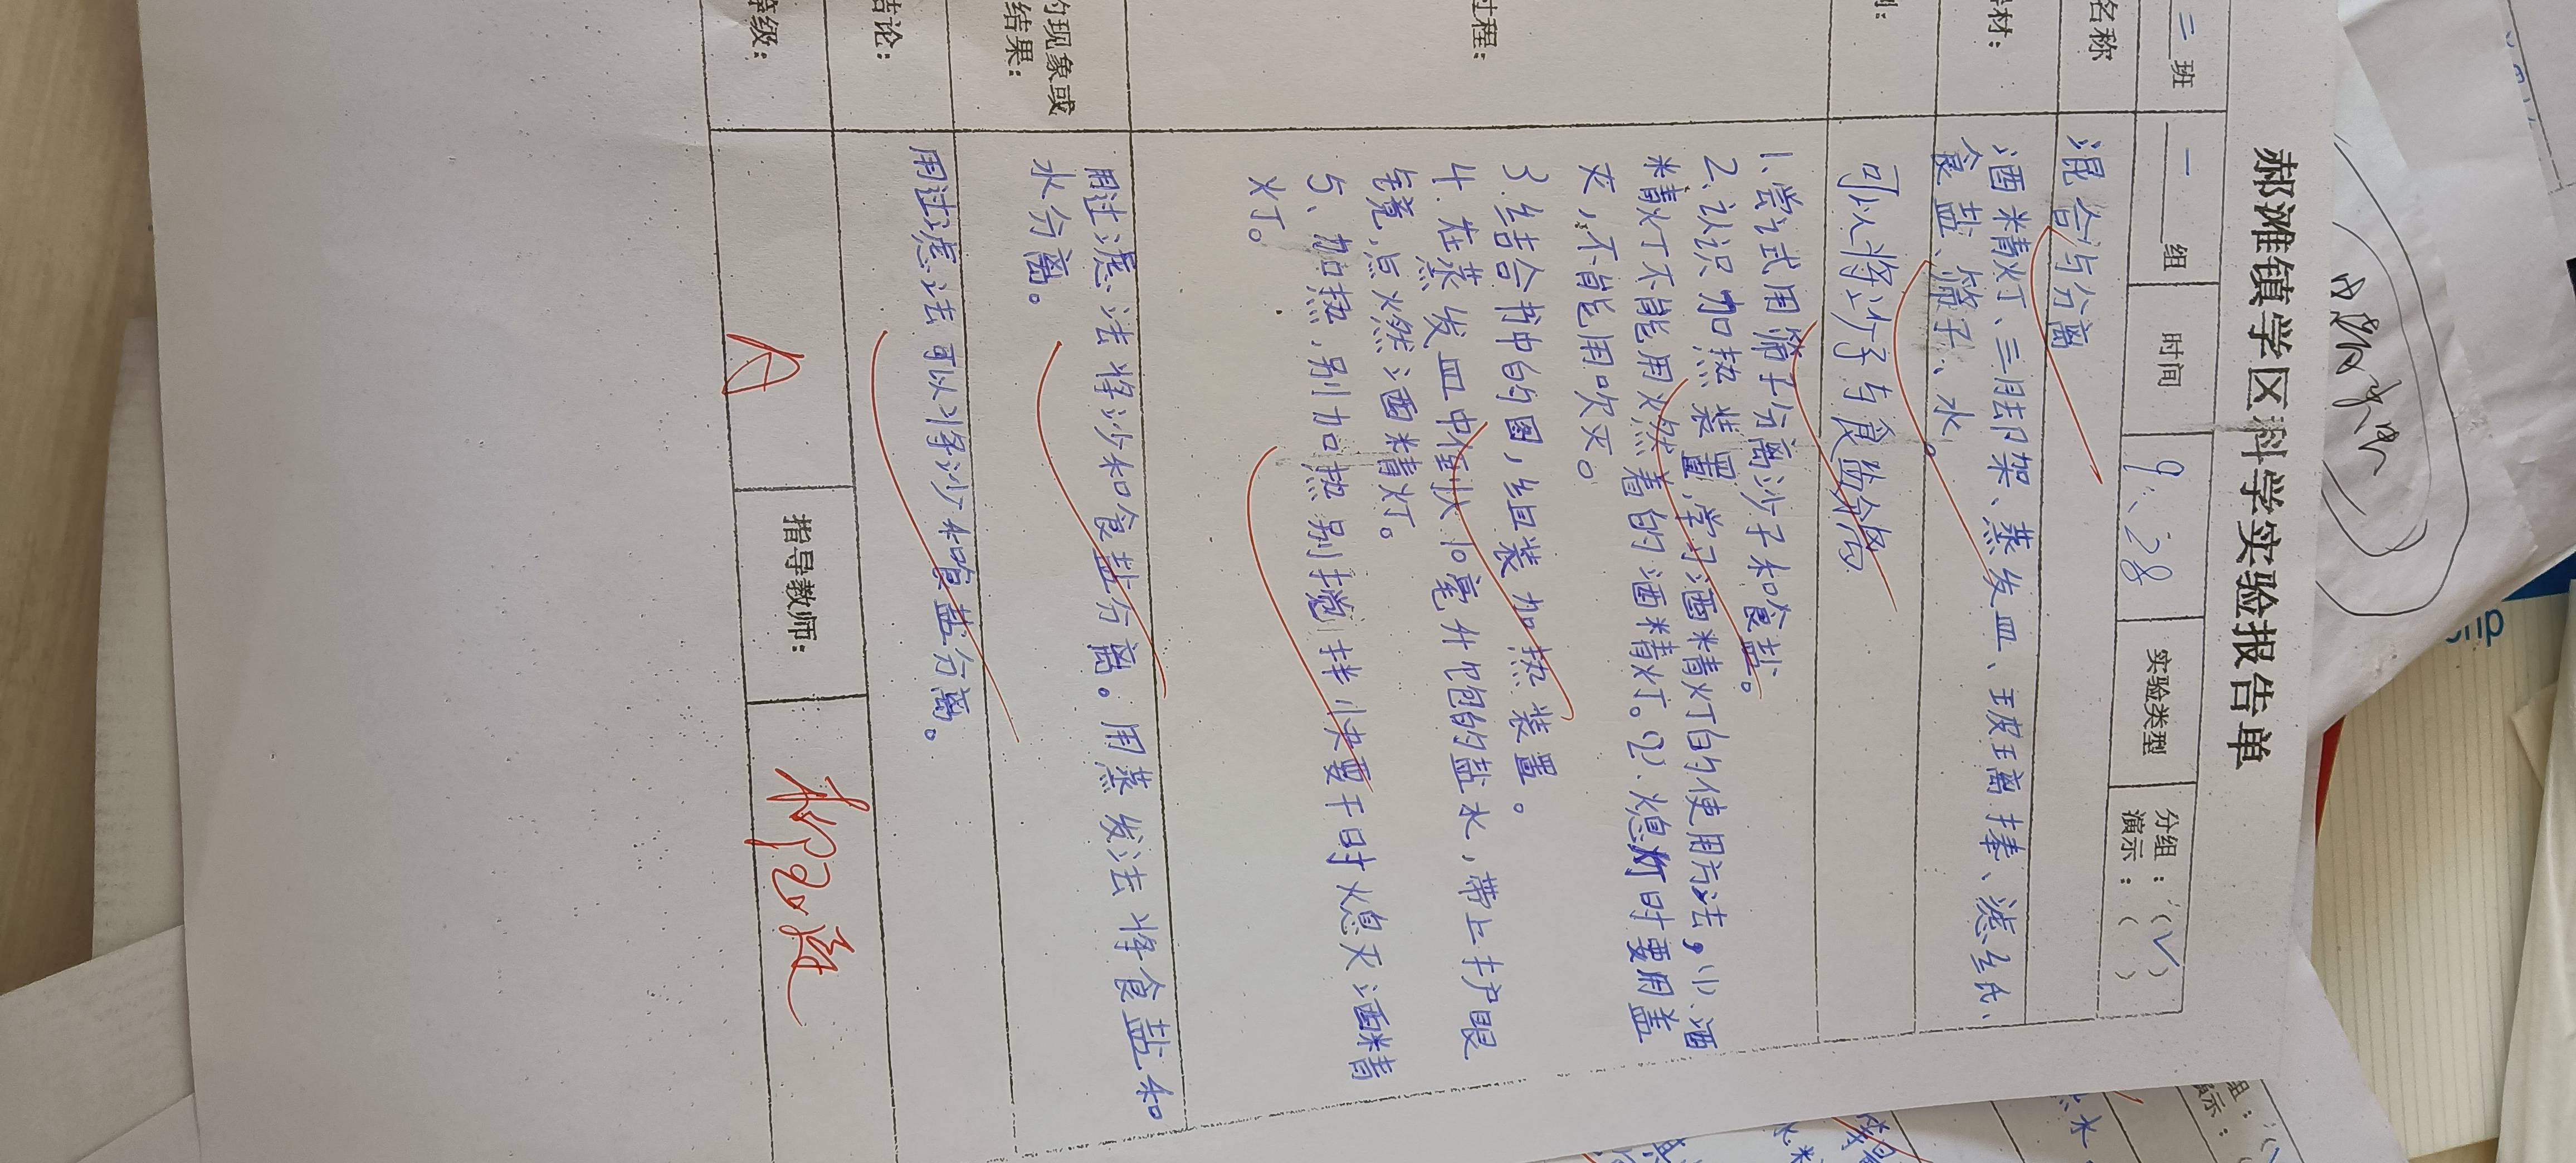 郝滩镇学区科学实验报告单
三 班 一 组 时间 9、28 实验类型 分组：(√)
演示：( )
名称 混合与分离
材： 酒精灯、三脚架、蒸发皿、玻璃棒、滤纸、
食盐、筛子、水。
可以将沙子与食盐分离
过程： 1.尝试用筛子分离沙子和食盐。
2、认识加热装置,学习酒精灯的使用方法，(1)、酒
精灯不能用火燃着的酒精灯。(2)、熄灯时要用盖
灭，不能用吹灭。
3.结合书中的图，组装加热装置。
4.在蒸发皿中倒状10毫升饱的盐水，带上护眼
镜，点燃酒精灯。
5、加热，别加热别搅拌快要干时熄灭酒精
灯。
的现象或
结果： 用过滤法将沙和食盐分离。用蒸发法将食盐和
水分离。
结论： 用过滤法可以将沙和食盐分离。
等级： A 指导教师：